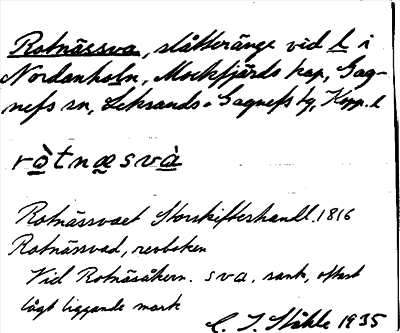 Rotnässva, slåtteränge vid L i
Nordanholn, Mockfjärds kap, Gag-
nefs sn, Leksands o Gagnefs tg, Kopp. l
ròtnæsvà
Rotnässvaet Storskifteshandl. 1816
Rotnässvad, revboken
Vid Rotnäsåkern. sva. sank, oftast
lågt liggande mark
C. I. Ståhle 1935